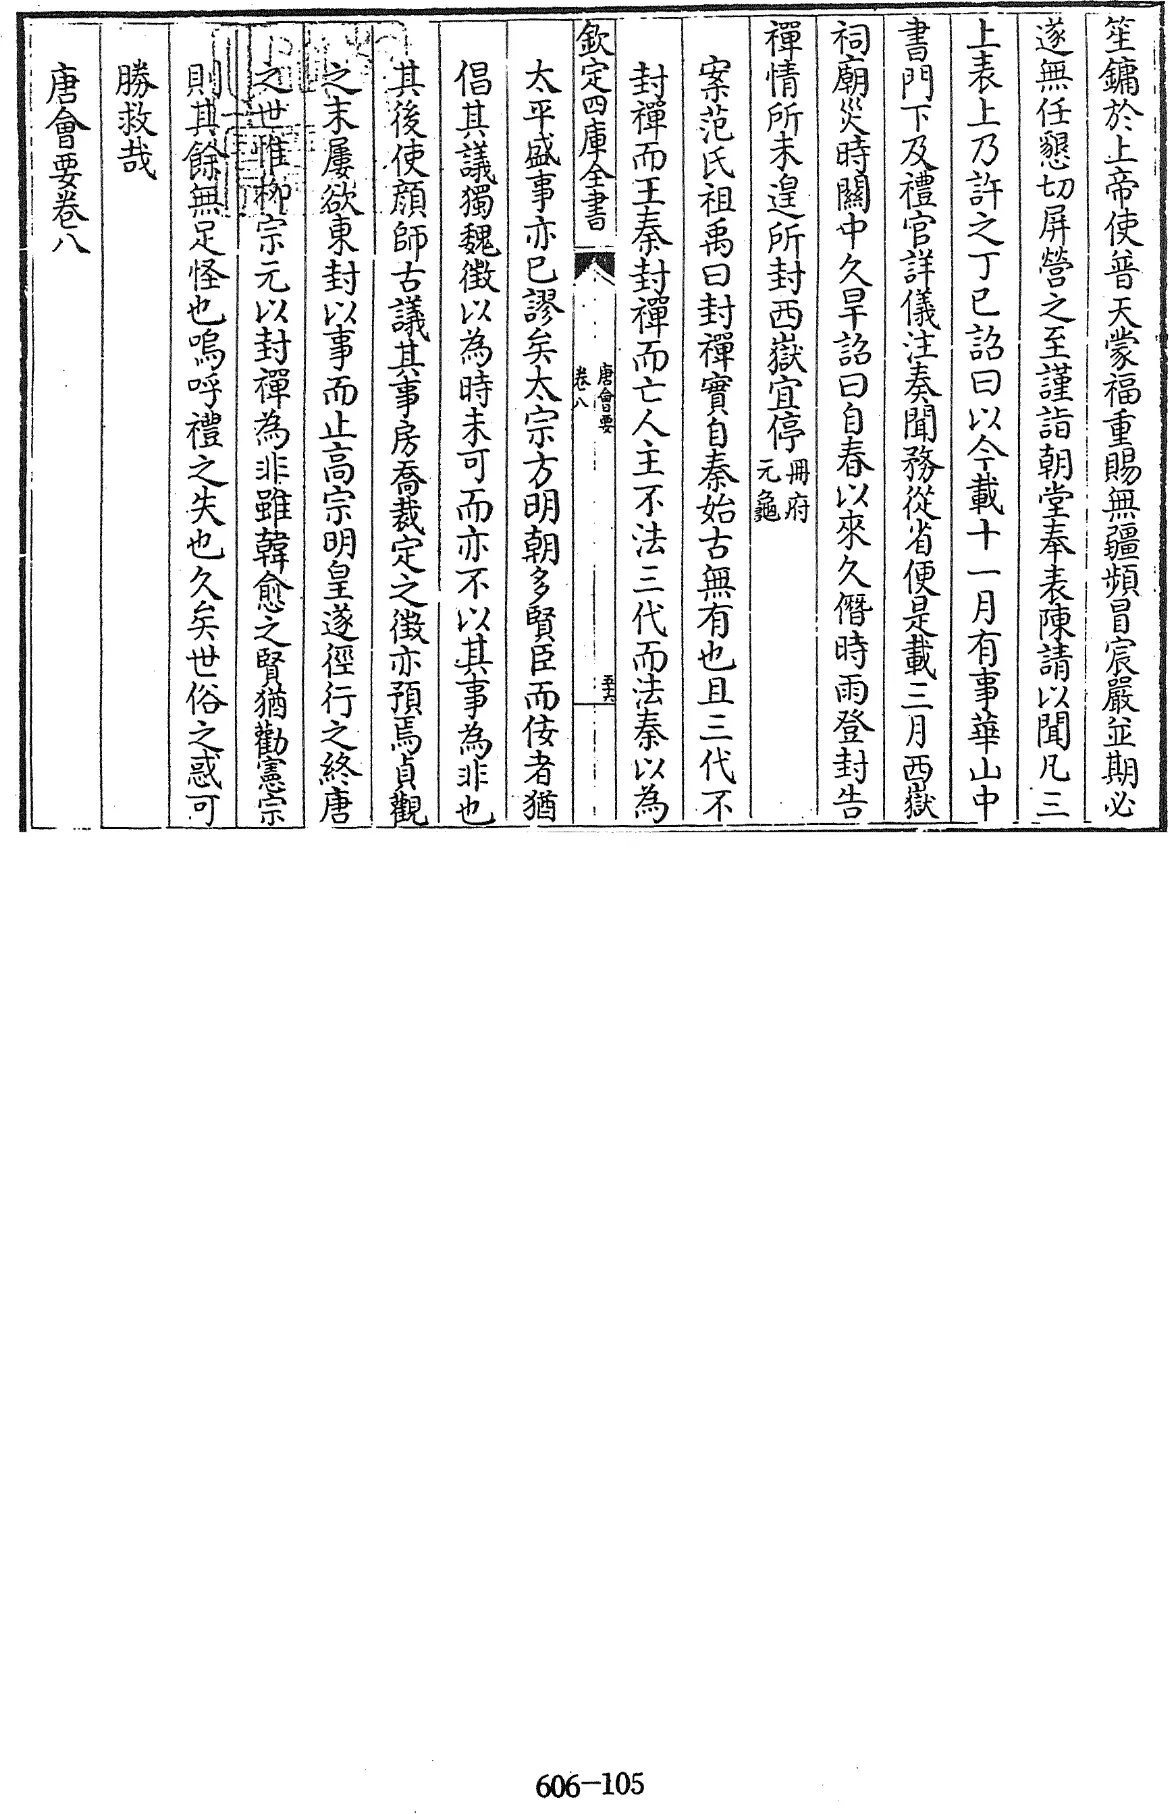 笙鏞於上帝使普天蒙福重賜無疆頻冒宸嚴並期必
遂無任懇切屏營之至謹詣朝堂奉表陳請以聞凡三
上表上乃許之丁巳詔曰以今載十一月有事華山中
書門下及禮官詳儀注奏聞務從省便是載三月西嶽
祠廟災時關中久旱詔曰自春以來久僭時雨登封告
禪情所未遑所封西嶽宜停冊府元龜
案范氏祖禹曰封禪實自秦始古無有也且三代不
封禪而王秦封禪而亡人主不法三代而法秦以為
欽定四庫全書
唐會要
卷八
五六
太平盛事亦已謬矣太宗方明朝多賢臣而佞者猶
倡其議獨魏徵以為時未可而亦不以其事為非也
其後使顏師古議其事房喬裁定之徵亦預焉貞觀
之末屢欲東封以事而止高宗明皇遂徑行之終唐
之世惟柳宗元以封禪為非雖韓愈之賢猶勸憲宗
則其餘無足怪也嗚呼禮之失也久矣世俗之惑可
勝救哉
唐會要卷八
606-105